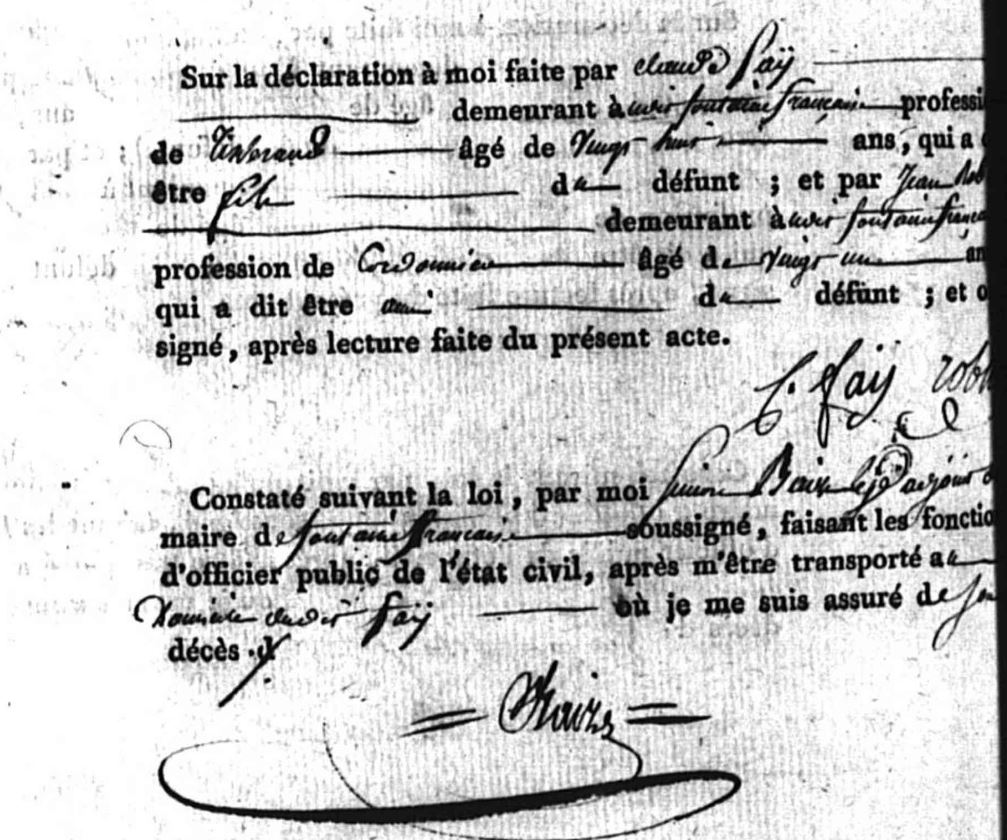 Sur la déclaration à moi faite par claude Faÿ
demeurant à fontaine française professi
de Tisserand âgé de Vingt huit ans, qui a
être fils du défunt ; et par Jean Rob
demeurant à fontaine franca
profession de Cordonnier âgé de vingt un an
qui a dit être ami du défunt ; et o
signé, après lecture faite du présent acte.
C. faÿ robi
Constaté suivant la loi, par moi
maire de fontaine française soussigné, faisant les fonctio
d'officier public de l'état civil, après m'être transporté au
Domicile dudit faÿ où je me suis assuré de son
décès .d